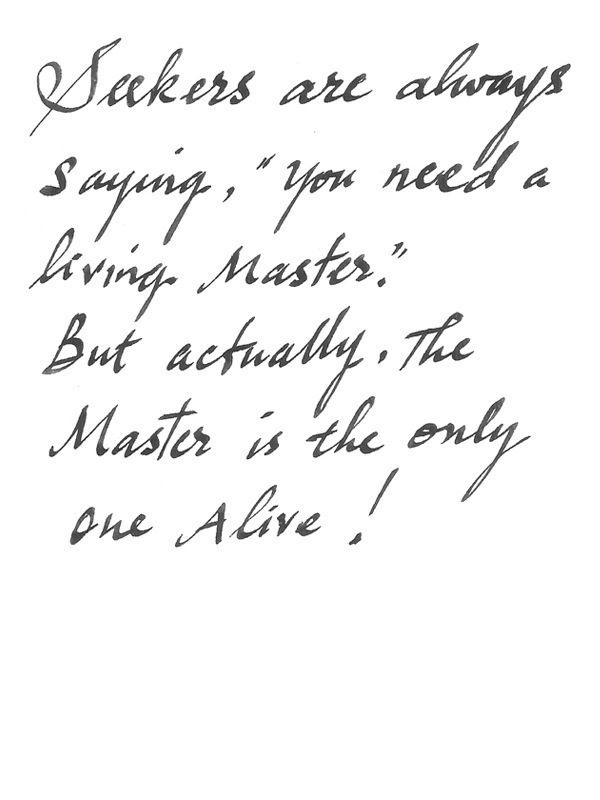 Seekers are always
saying, "You need a
living Master."
But actually. The
Master is the only
one Alive!